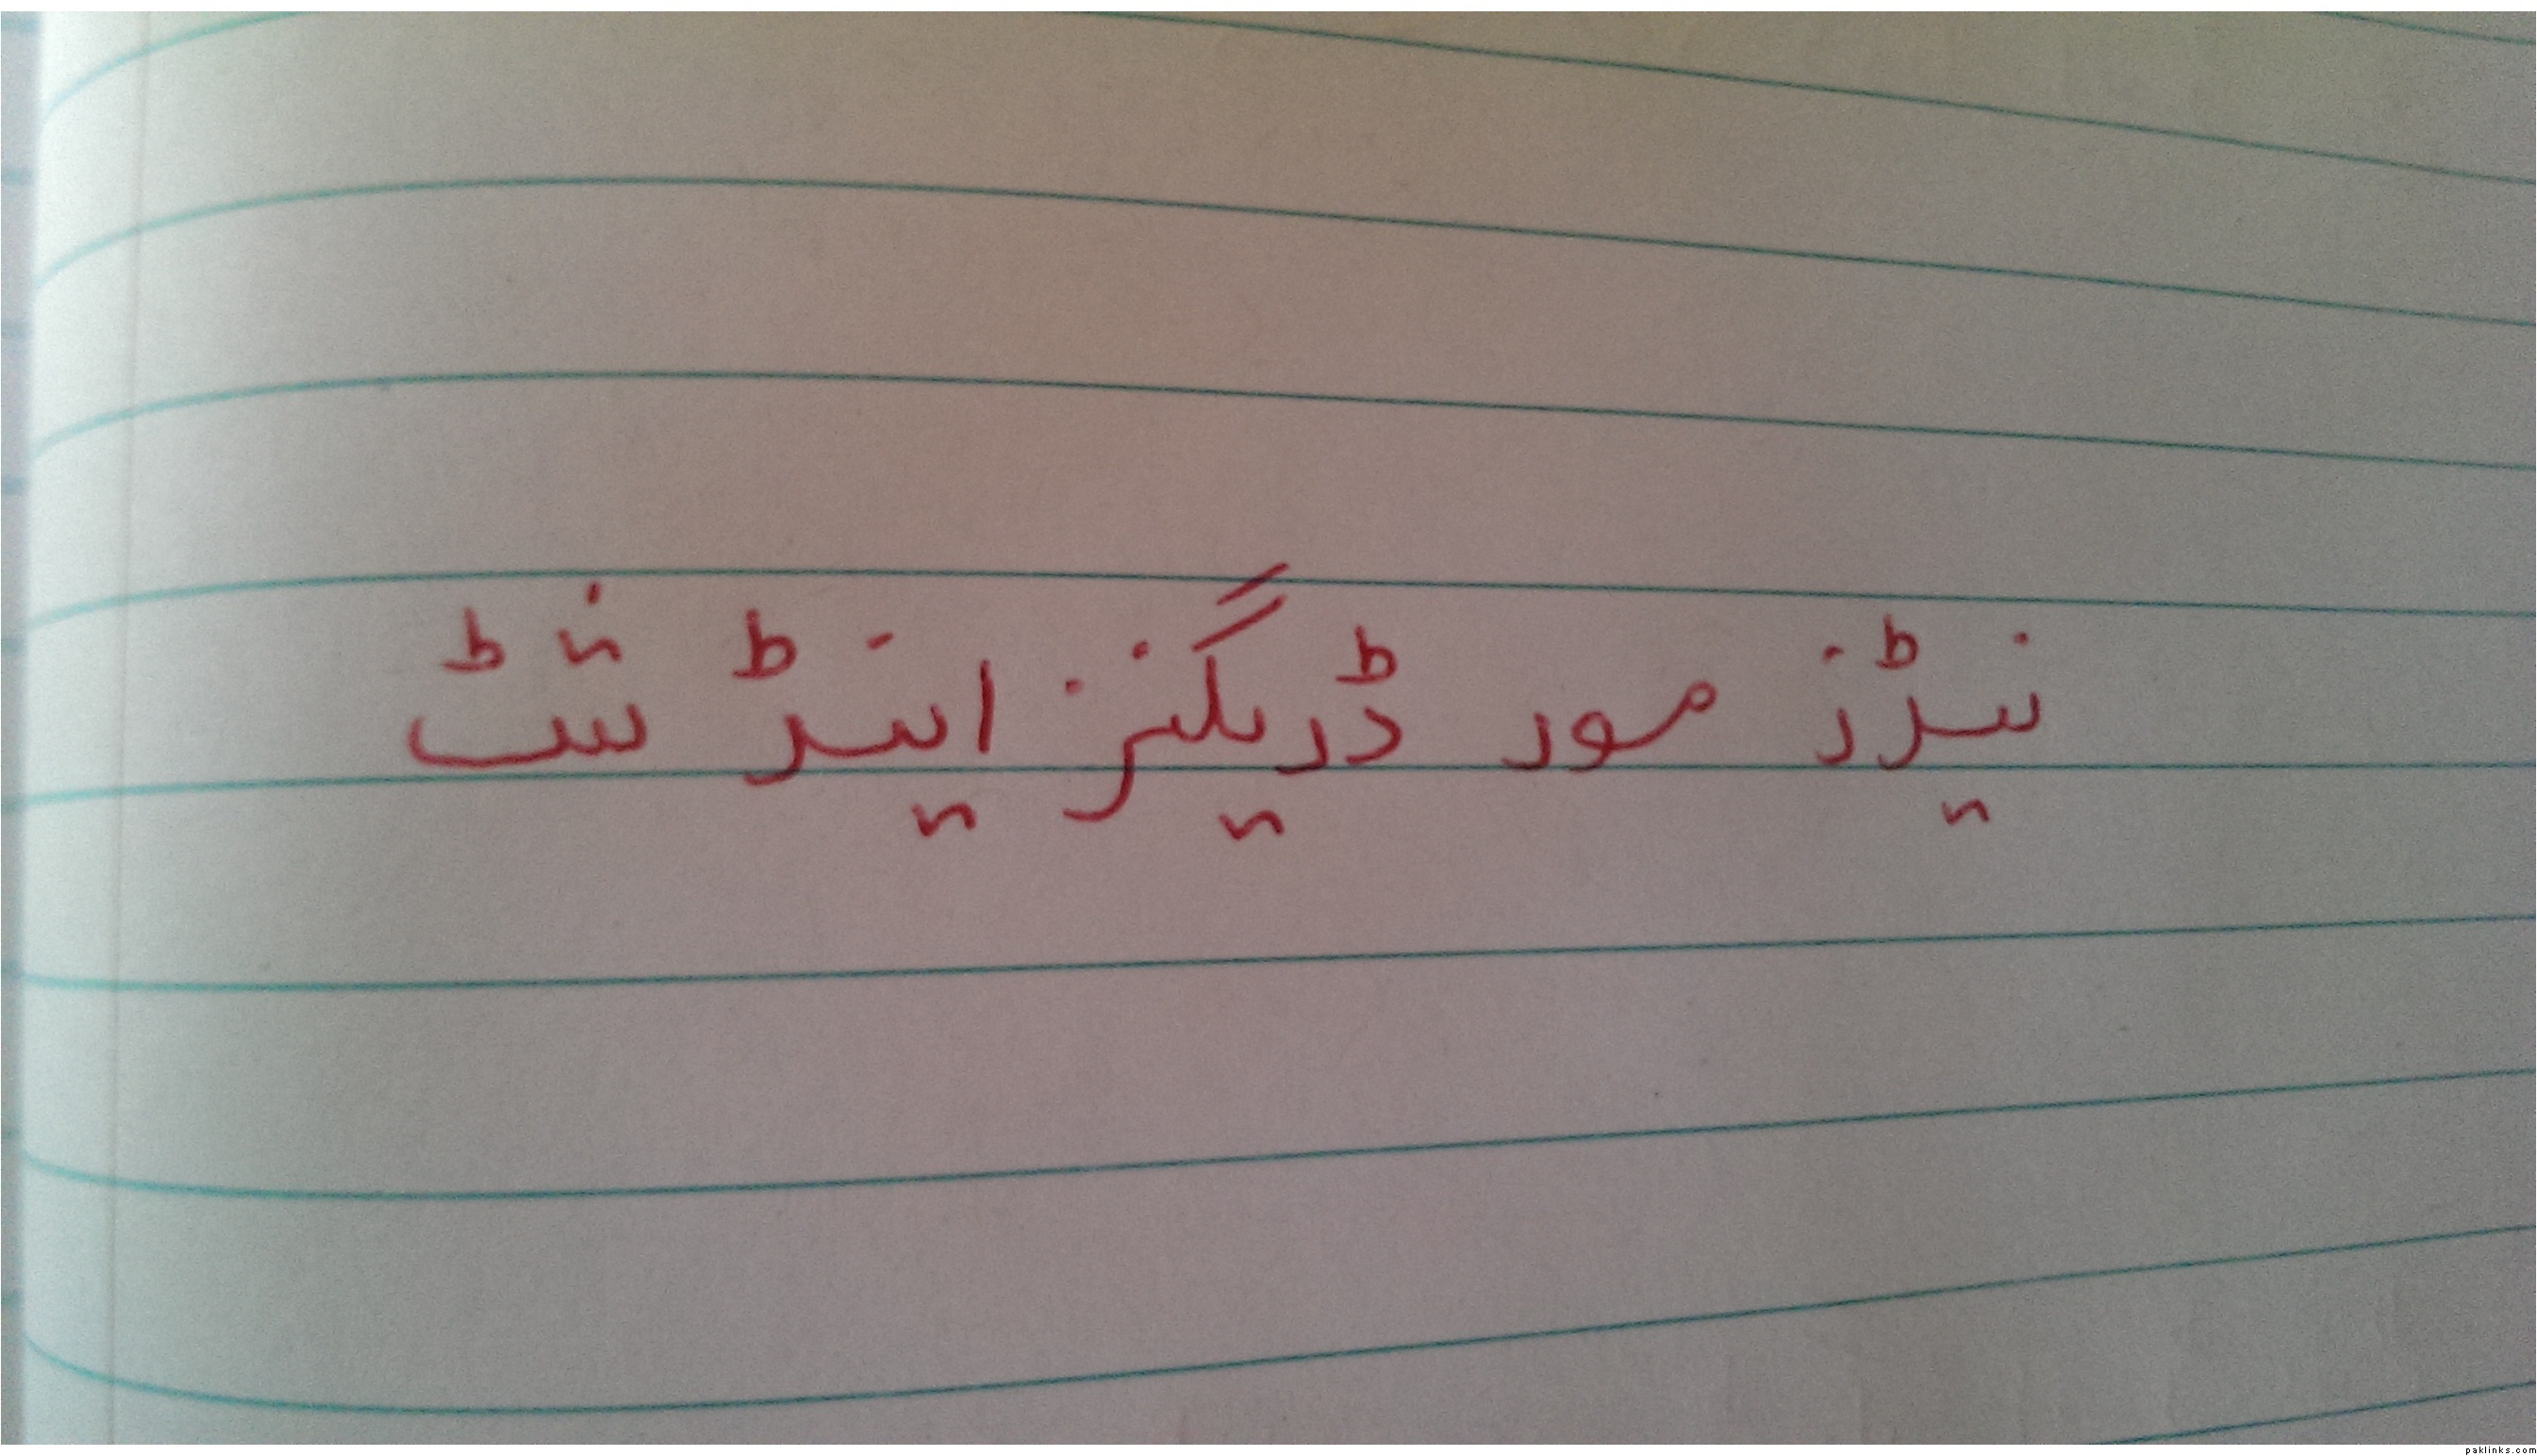 نیڑز مور ڈریگنز اینڑ شٹ
paklinks.com